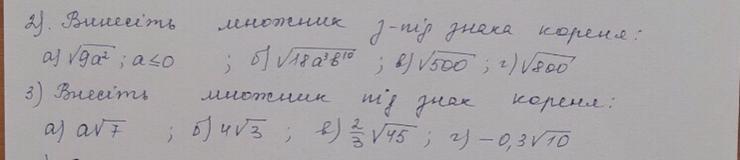 2). Винесіть множник з-під знака кореня:
а) √9a²; a≤0 ; б) √18a³b¹⁰ ; в) √500 ; г) √800
3) Внесіть множник під знак кореня:
а) a√7 ; б) 4√3 ; в) 2/3√45 ; г) -0,3√10